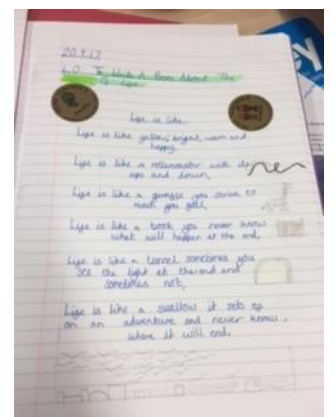 20.9.17
L.O To Write A Poem About The
Of Life
Life is like.
Life is like yellow, bright, warm and
happy.
Life is like a rollercoaster with its
ups and down,
Life is like a you strive to
reach you goll,
Life is like a book you never know
what will happen at the end,
Life is like a tunnel sometimes you
see the light at the end and
sometimes not,
Life is like a swallow it sets of
on an adventure and never know
where it will end.
ey